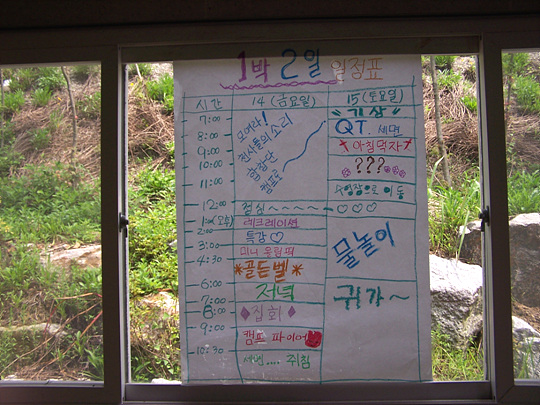 1박 2일 일정표
시간 14 (금요일) 15 (토요일)
7:00 기상
8:00 모여라! QT. 세면
9:00 천사들의 소리 아침먹자
10:00 합창단 ???
11:00 캠프로 수영장으로 이동
12:00 점심~~~~ ♡♡♡
1:00 (오후) 레크레이션
2:00 특강♡ 물놀이
3:00 미니 올림픽
4:30 *골든벨*
6:00 저녁 귀가~
7:00
8:00 ◆집회◆
9:00 캠프 파이어
10:30 세면.... 취침